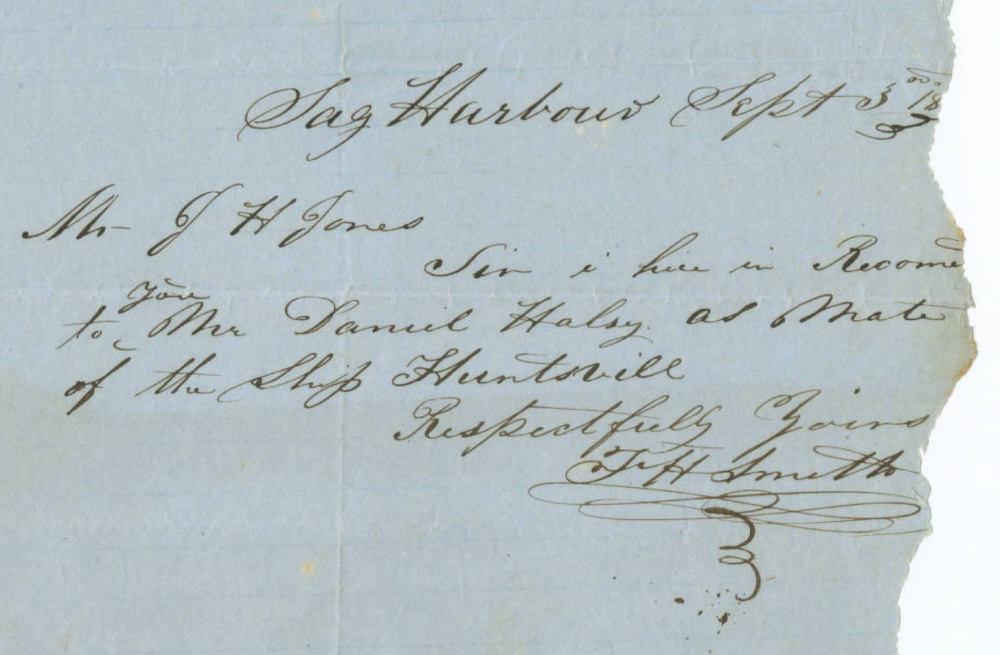 Sag Harbour Sept 3rd 18
Mr J H Jones
Sir i here in Recome
to you Mr Daniel Halsy as Mate
of the Ship Huntsvill
Respectfully Yours
F H Smith